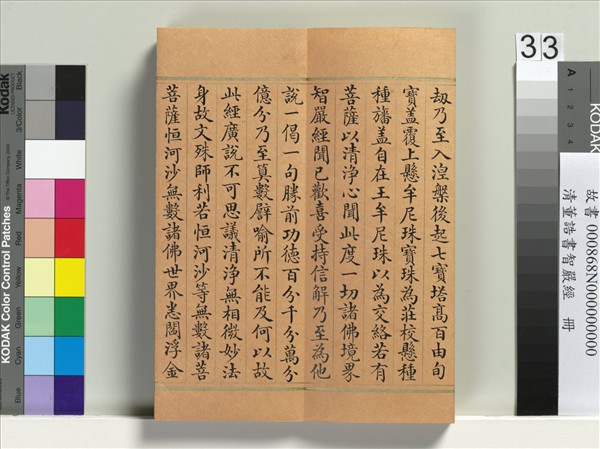 刼乃至入涅槃後起七寶塔高百由旬
寶盖覆上懸牟尼珠寶珠為莊校懸種
種旛盖自在王牟尼珠以為交絡若有
菩薩以清淨心聞此度一切諸佛境界
智嚴經聞已歡喜受持信解乃至為他
說一偈一句勝前功德百分千分萬分
億分乃至算數譬喻所不能及何以故
此經廣說不可思議清淨無相微妙法
身故文殊師利若恒河沙等無數諸菩
菩薩恒河沙無數諸佛世界悉閻浮金
33
A 1 2 3 4
KODAK
故書 000868N000000000
清董誥書智嚴經 冊
Kodak
KODAK Color Control Patches
Blue Cyan Green Yellow Red Magenta White 3/Color Black